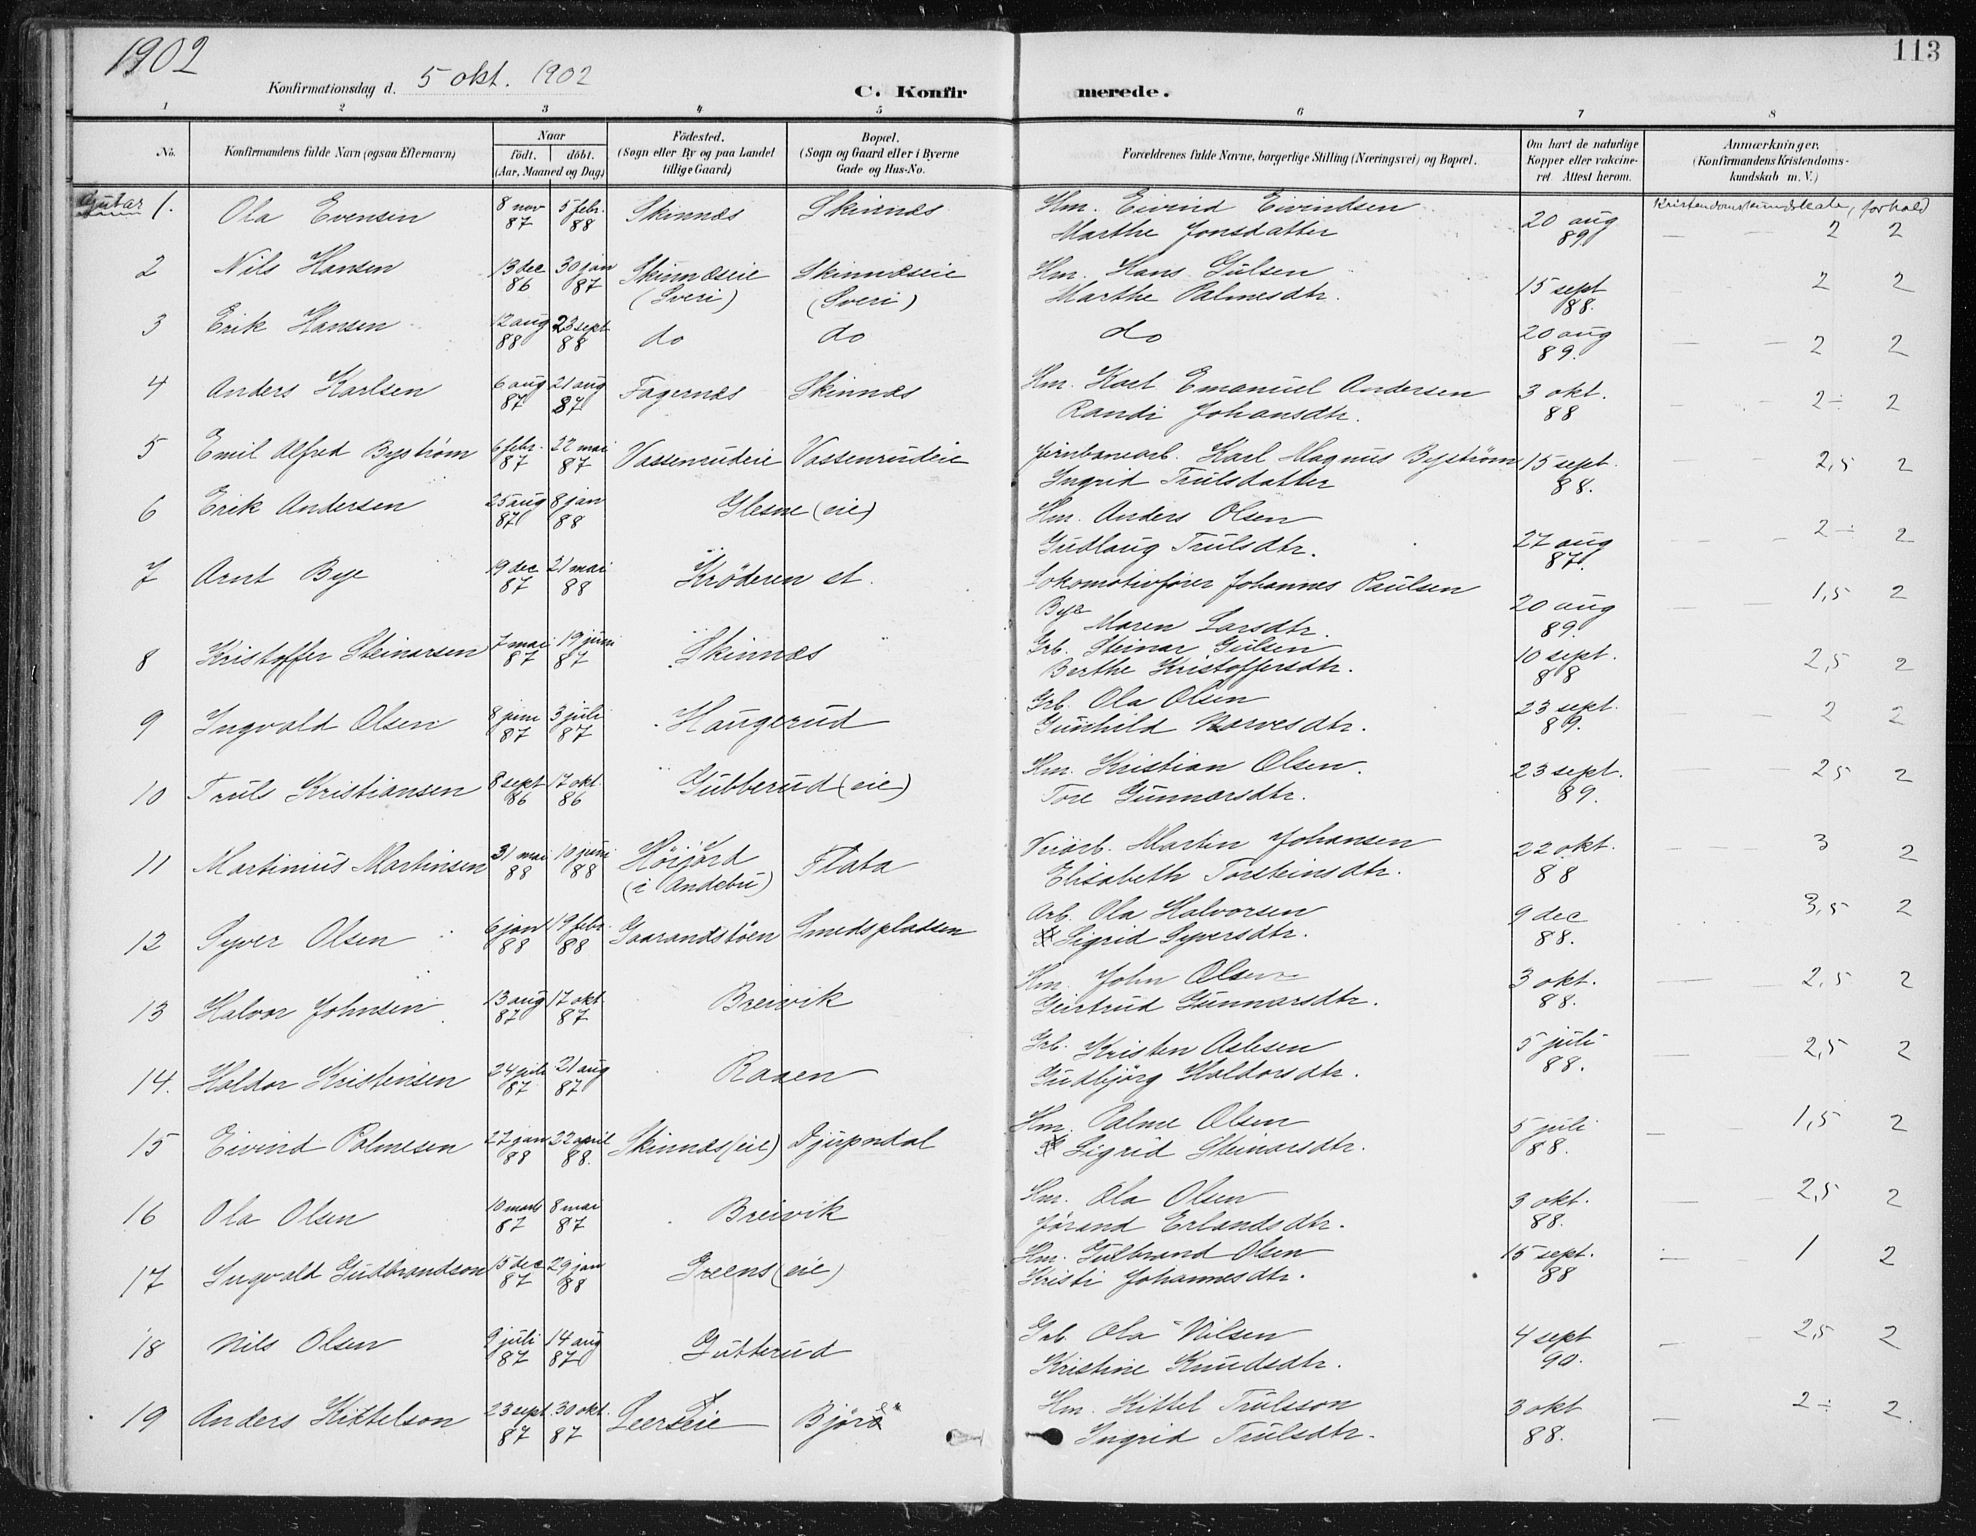 1902
113
Konfirmationsdag d. 5 okt. 1902
C. Konfirmerede.
1 2 3 4 5 6 7 8
No. | Konfirmandens fulde Navn (ogsaa Efternavn) | Naar födt. döbt. (Aar, Maaned og Dag) | Födested. (Sogn eller By og paa Landet tillige Gaard) | Bopæl. (Sogn og Gaard eller i Byerne Gade og Hus-No. | Forældrenes fulde Navne, borgerlige Stilling (Næringsvei) og Bopæl. | Om havt de naturlige Kopper eller vakcineret. Attest herom. | Anmærkninger. (Konfirmandens Kristendomskundskab m. V.)
Gutar
Kristendomskundskab, forhold
1. Ola Evensen | 8 nov 87 | 5 febr. 88 | Skinnæs | Skinnæs | Hm. Eivind Eivindsen Marthe Jonsdatter | 20 aug 89 | 2 2
2 Nils Hansen | 13 dec 86 | 30 jan 87 | Skinnæseie (Sveri) | Skinnæseie (Sveri) | Hm. Hans Gulsen Marthe Palmesdtr. | 15 sept 88. | 2 2
3 Erik Hansen | 12 aug 88 | 23 sept 88 | do | do | do | 20 aug 89. | 2 2
4 Anders Karlsen | 6 aug 87 | 21 aug 87 | Fagernæs | Skinnæs | Hm. Karl Emanuel Andersen Randi Johansdtr. | 3 okt. 88 | 2÷ 2
5 Emil Alfred Byström | 6 febr. 87 | 22 mai 87 | Vassenrudeie | Vassenrudeie | jernbanearb. Karl Magnus Byström Ingrid Trulsdatter | 15 sept. 88. | 2,5 2
6 Erik Andersen | 25 aug 87 | 8 jan 88 | Glesne (eie) | Hm. Anders Olsen Gudlaug Trulsdtr. | 27 aug 87. | 2÷ 2
7 Arnt Bye | 19 dec 87 | 21 mai 88 | Kröderen st. | Lokomotivfører Johannes Paulsen Bye Maren Larsdtr. | 20 aug 89. | 1,5 2
8 Kristoffer Steinarsen | 7 mai 87 | 19 juni 87 | Skinnæs | Grb. Steinar Gulsen Berthe Kristoffersdtr. | 10 sept. 88 | 2,5 2
9 Ingvald Olsen | 8 juni 87 | 3 juli 87 | Haugerud | Grb. Ola Olsen Gunhild Narvesdtr. | 23 sept. 89. | 2 2
10 Truls Kristiansen | 8 sept 86 | 17 okt. 86 | Gubberud (eie) | Hm. Kristian Olsen. Tore Gunnarsdtr. | 23 sept. 89. | 25 2
11 Martinius Martinsen | 31 mai 88 | 10 juni 88 | (i Andebu) | Flata | Martin Johansen Elisabeth Torsteinsdtr. | 22 okt. 88 | 3 2
12 Syver Olsen | 6 jan 88 | 19 febr. 88 | Gaarandstöen | Smedspladsen | Arb. Ola Halvorsen Sigrid Syversdtr. | 9 dec 88. | 3,5 2
13 Halvor Johnsen | 13 aug 87 | 17 okt 87 | Breivik | Hm. John Olsen Geirtrud Gunnarsdtr. | 3 okt. 88. | 2,5 2
14. Haldor Kristensen | 24 juli 87 | 21 aug 87 | Raaen | Grb. Kristen Aslesen Gudbjörg Haldorsdtr. | 5 juli 88. | 2,5 2
15 Eivind Palmesen | 27 jan 88 | 22 april 88. | Skinnæs (eie) | Djupndal | Hm. Palme Olsen Sigrid Steinarsdtr. | 5 juli 88. | 1,5 2
16 Ola Olsen | 10 marts 87 | 8 mai 87 | Breivik | Hm. Ola Olsen Jörand Erlandsdtr. | 3 okt. 88. | 2,5 2
17 Ingvald Gudbrandson | 15 dec 87 | 29 jan 88 | Greens (eie) | Hm. Gulbrand Olsen Kristi Johannesdtr. | 15 sept. 88 | 1 2
18 Nils Olsen | 9 juli 87 | 14 aug 87 | Gubberud | Grb. Ola Nilsen Kristine Knudsdtr. | 4 sept 90. | 2,5 2
19 Anders Kittelson | 23 sept. 87 | 30 okt. 87 | Leerseie | Hm. Kittel Trulsson Ingrid Trulsdtr. | 3 okt 88. | 2÷ 2.